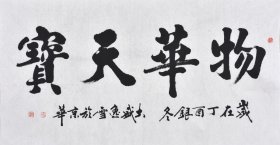 物華天寶
歲在丁酉銀冬大盛逸雪於京華